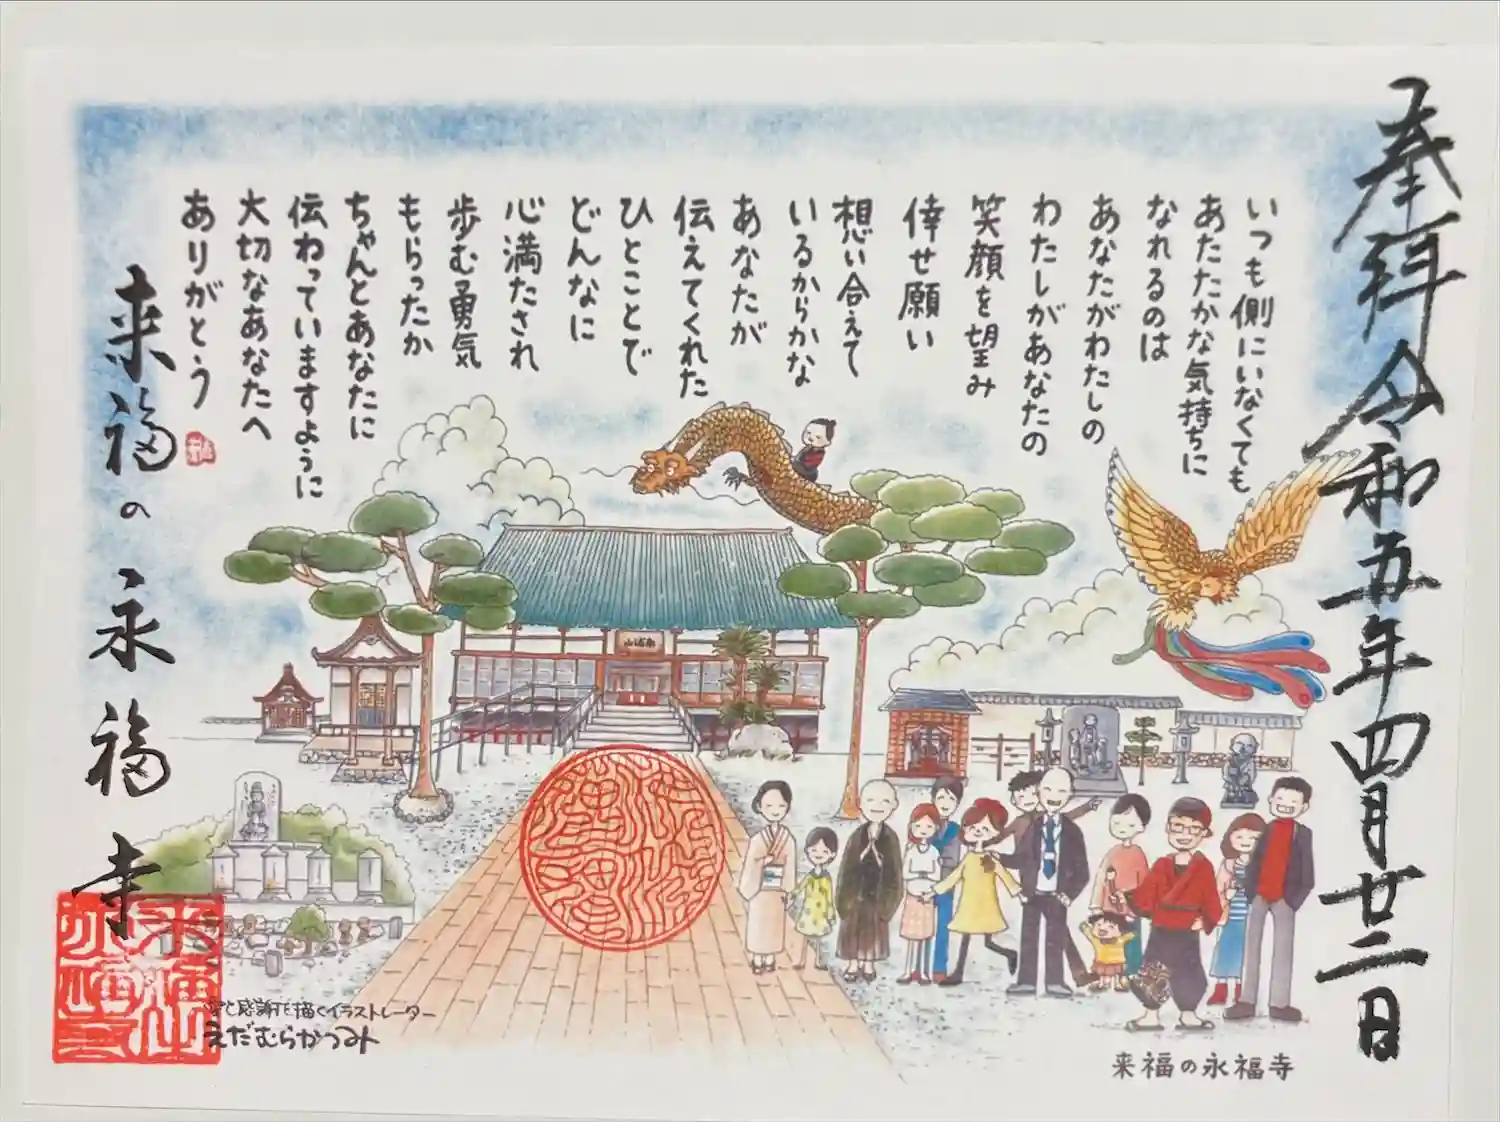 奉拝
令和五年四月廿二日
いつも側にいなくても
あたたかな気持ちに
なれるのは
あなたがわたしの
わたしがあなたの
笑顔を望み
倖せ願い
想い合えて
いるからかな
あなたが
伝えてくれた
ひとことで
どんなに
心満たされ
歩む勇気
もらったか
ちゃんとあなたに
伝わっていますように
大切なあなたへ
ありがとう
来福の永福寺
愛と感謝を描くイラストレーター
えだむらかつみ
来福の永福寺